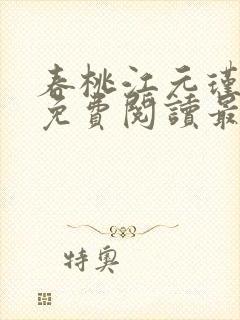 春桃江元瑾
免費閱讀最
特奧